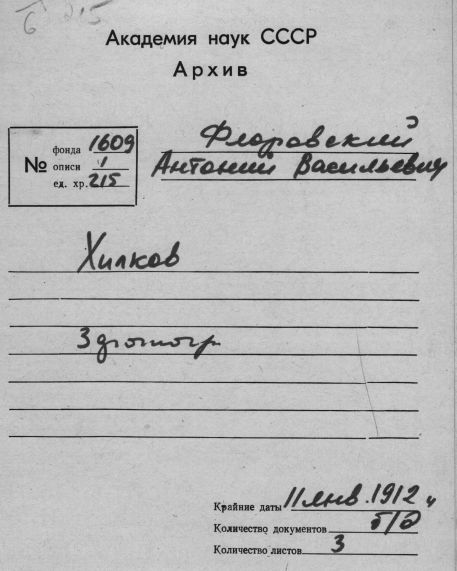 215
Академия наук СССР
Архив
№ фонда 1609
описи 1
ед. хр. 215
Флоровский
Антоний Васильевич
Хилков
3 фотогр
Крайние даты 11 янв. 1912 и
Количество документов б/д
Количество листов 3